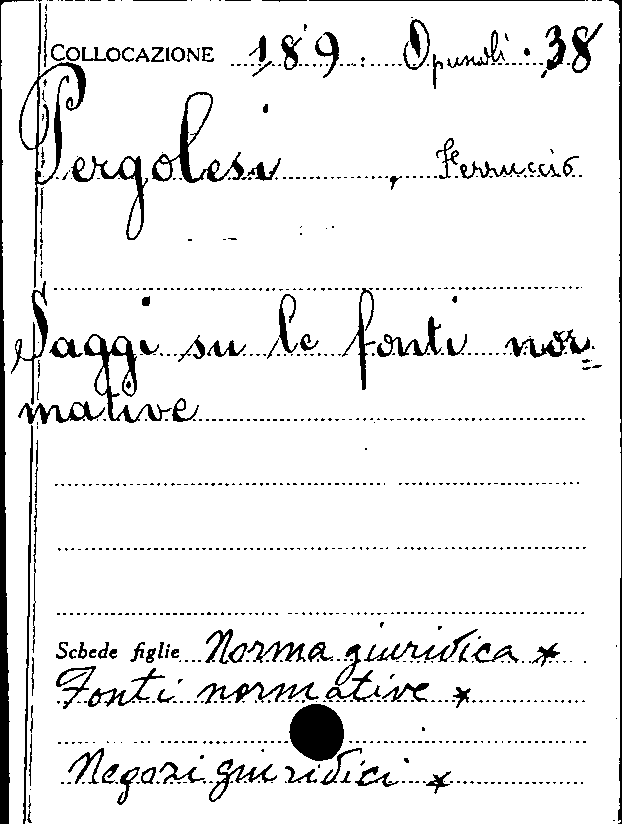 COLLOCAZIONE 189. Opuscoli. 38
Pergolesi, Ferruccio
Saggi su le fonti nor=
mative
Schede figlie Norma giuridica *
Fonti normative *
Negozi giuridici *